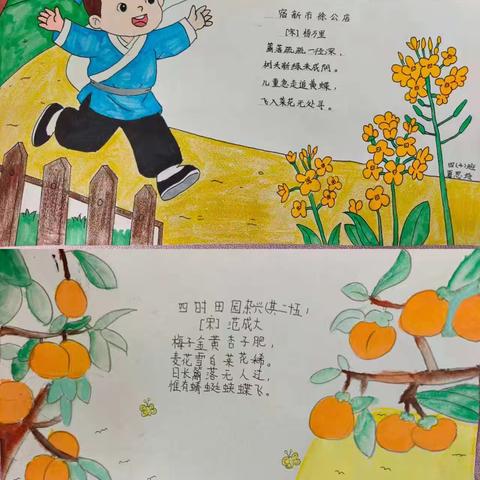 宿新市徐公店
[宋] 杨万里
篱落疏疏一径深,
树头新绿未成阴。
儿童急走追黄蝶,
飞入菜花无处寻。
四时田园杂兴(其二十五)
[宋] 范成大
梅子金黄杏子肥,
麦花雪白菜花稀。
日长篱落无人过,
惟有蜻蜓蛱蝶飞。